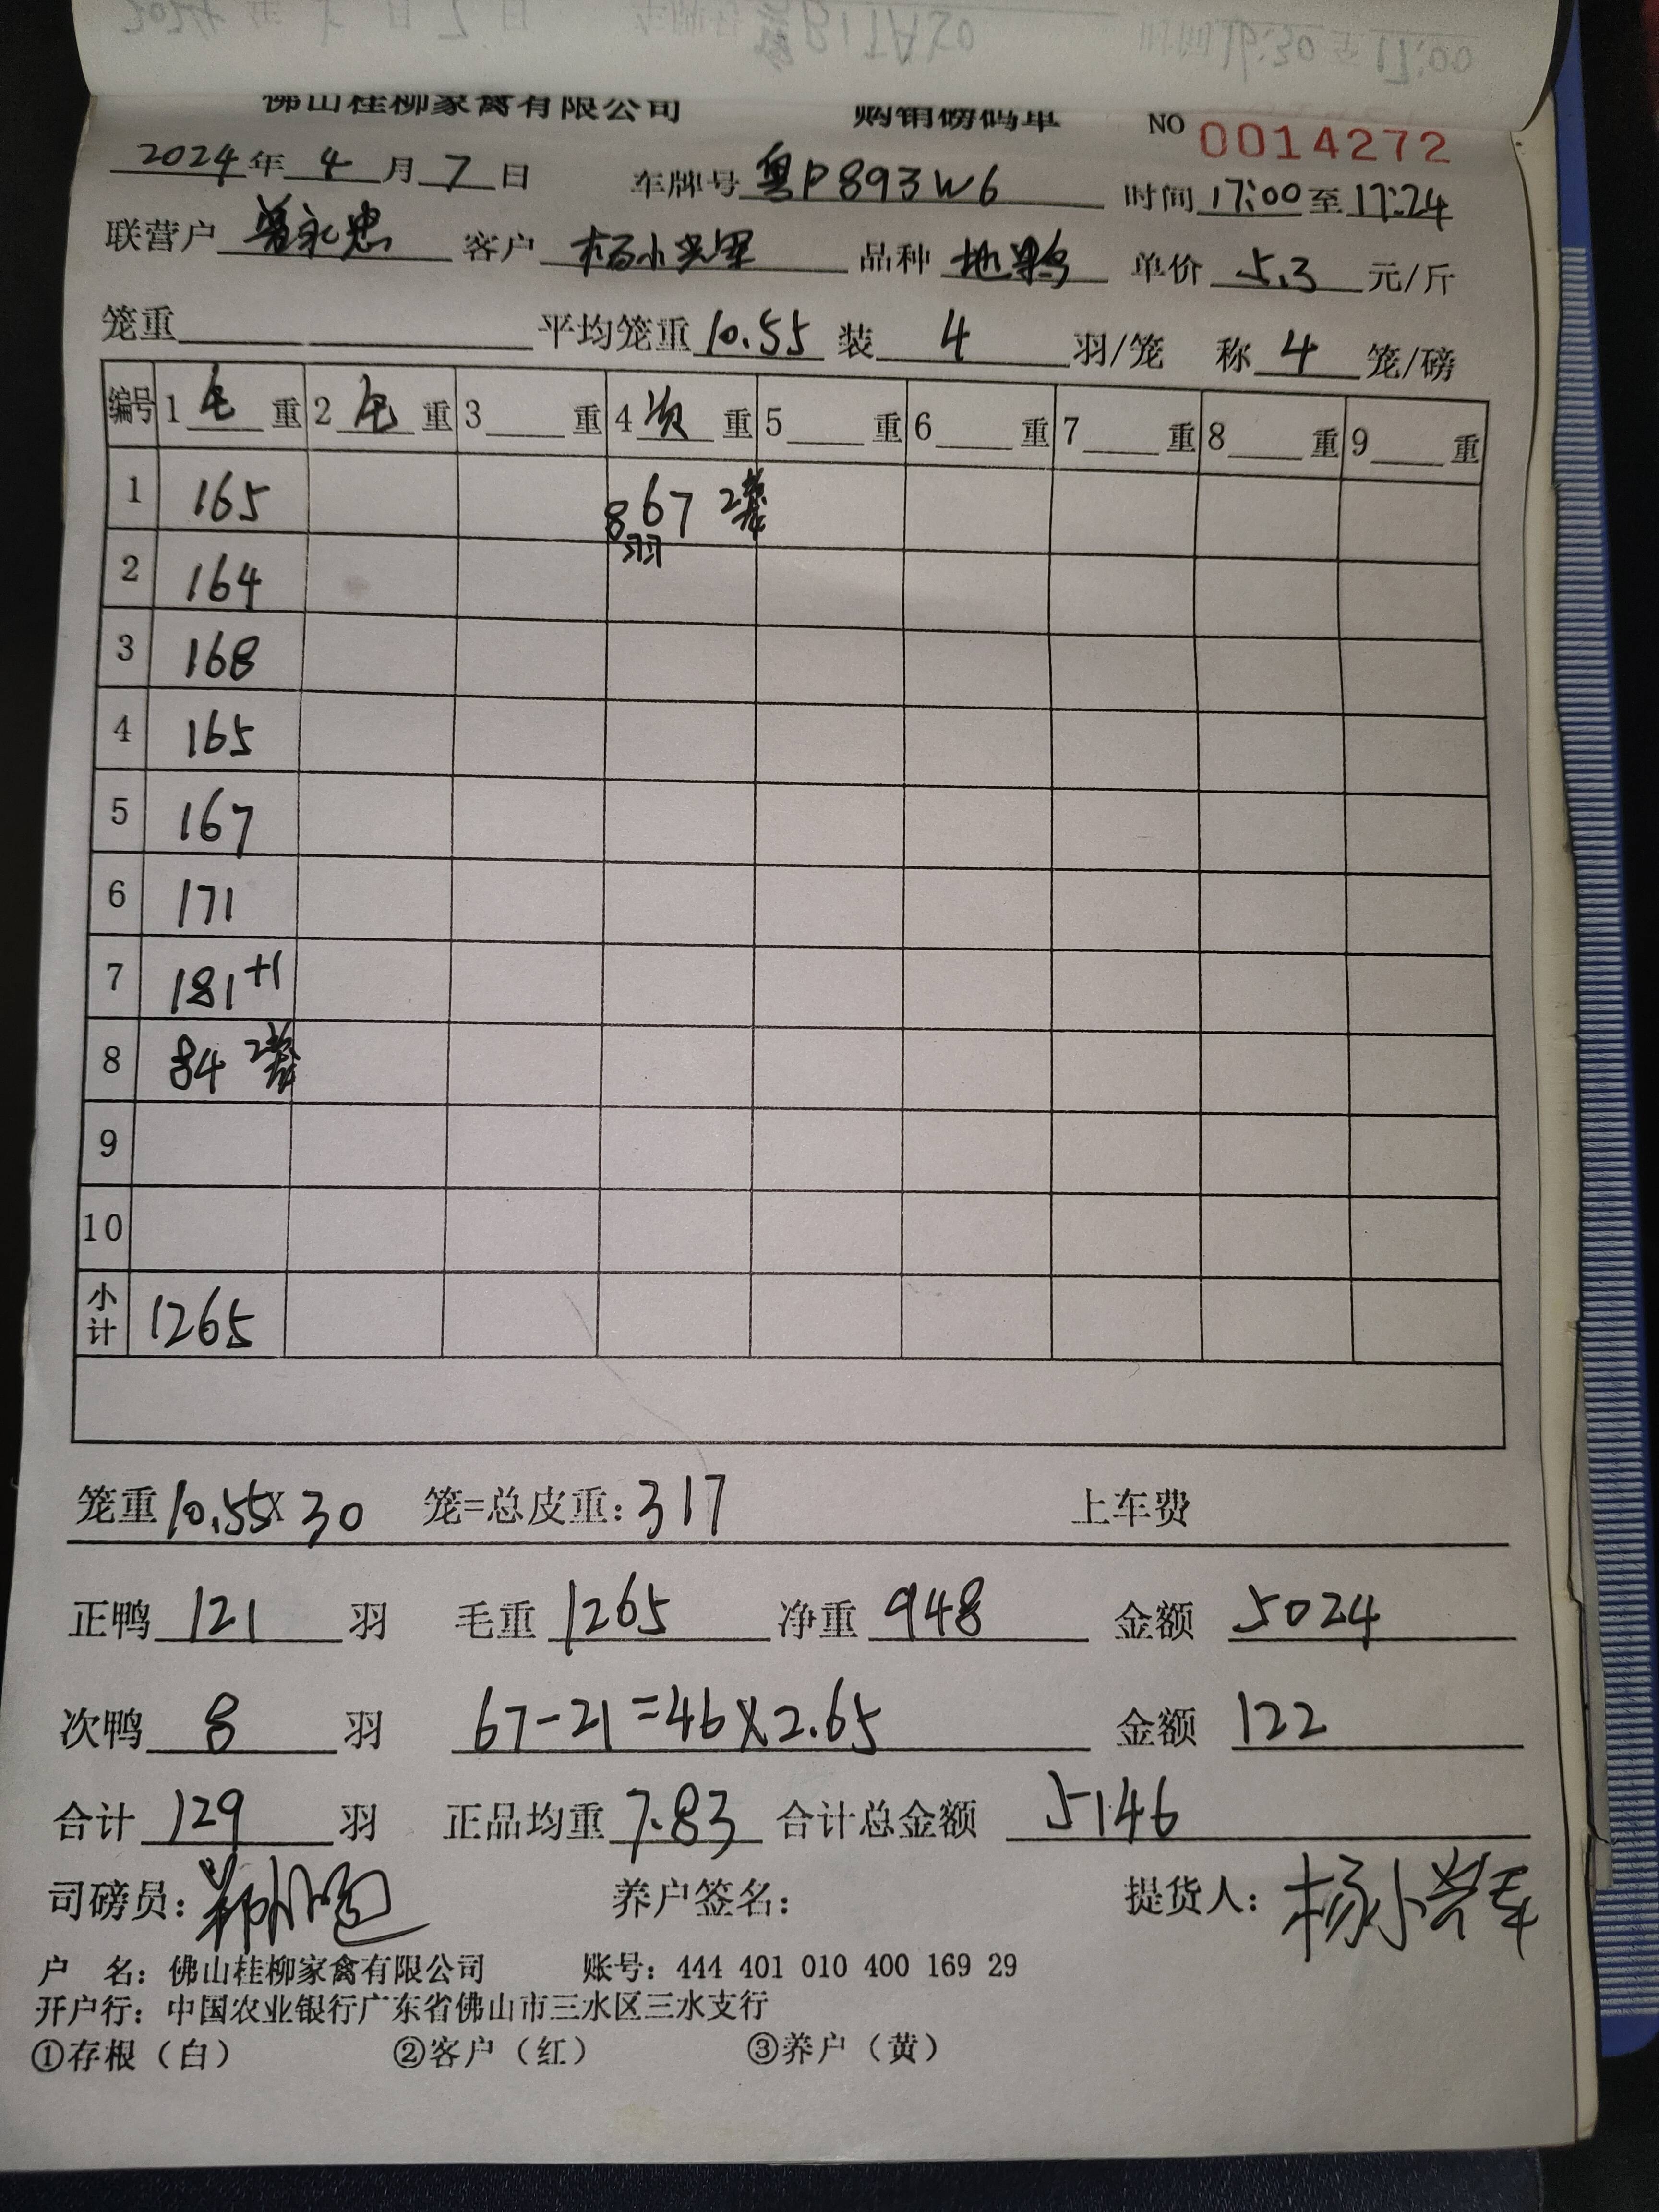 佛山桂柳家禽有限公司 购销磅码单 NO 0014272
2024年4月7日 车牌号 粤P893W6 时间 17:00 至 17:24
联营户 曾永忠 客户 杨小 品种 地 单价 5.3 元/斤
笼重 平均笼重 10.55 装 4 羽/笼 称 4 笼/磅
编号 1 毛 重 2 毛 重 3 重 4 次 重 5 重 6 重 7 重 8 重 9 重
1 165 8羽 67 2
2 164
3 168
4 165
5 167
6 171
7 181+1
8 84 2
9
10
小计 1265
笼重 10.55X 30 笼=总皮重: 317 上车费
正鸭 121 羽 毛重 1265 净重 948 金额 5024
次鸭 8 羽 67-21=46X2.65 金额 122
合计 129 羽 正品均重 7.83 合计总金额 5146
司磅员: 养户签名: 提货人: 杨小
户 名: 佛山桂柳家禽有限公司 账号: 444 401 010 400 169 29
开户行: 中国农业银行广东省佛山市三水区三水支行
①存根（白） ②客户（红） ③养户（黄）